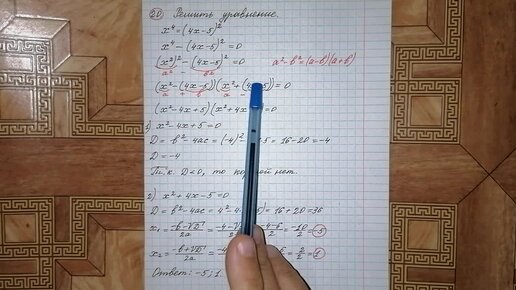 20 Решить уравнение.
x⁴ = (4x-5)²
x⁴ - (4x-5)² = 0
(x²)² - (4x-5)² = 0 a² - b² = (a-b)(a+b)
a² - b²
(x² - (4x-5))(x² + (4x-5)) = 0
a - b a
(x² - 4x + 5)(x² + 4x = 0
1) x² - 4x + 5 = 0
D = b² - 4ac = (-4)² - 5 = 16 - 20 = -4
D = -4
Т.к. D < 0, то корней нет.
2) x² + 4x - 5 = 0
D = b² - 4ac = 4² - 4· = 16 + 20 = 36
x₁ = (-b-√D)/2a = (-4-√ = (-4-6)/2 = -10/2 = -5
x₂ = (-b+√D)/2a = = 2/2 = 1
Ответ: -5; 1.